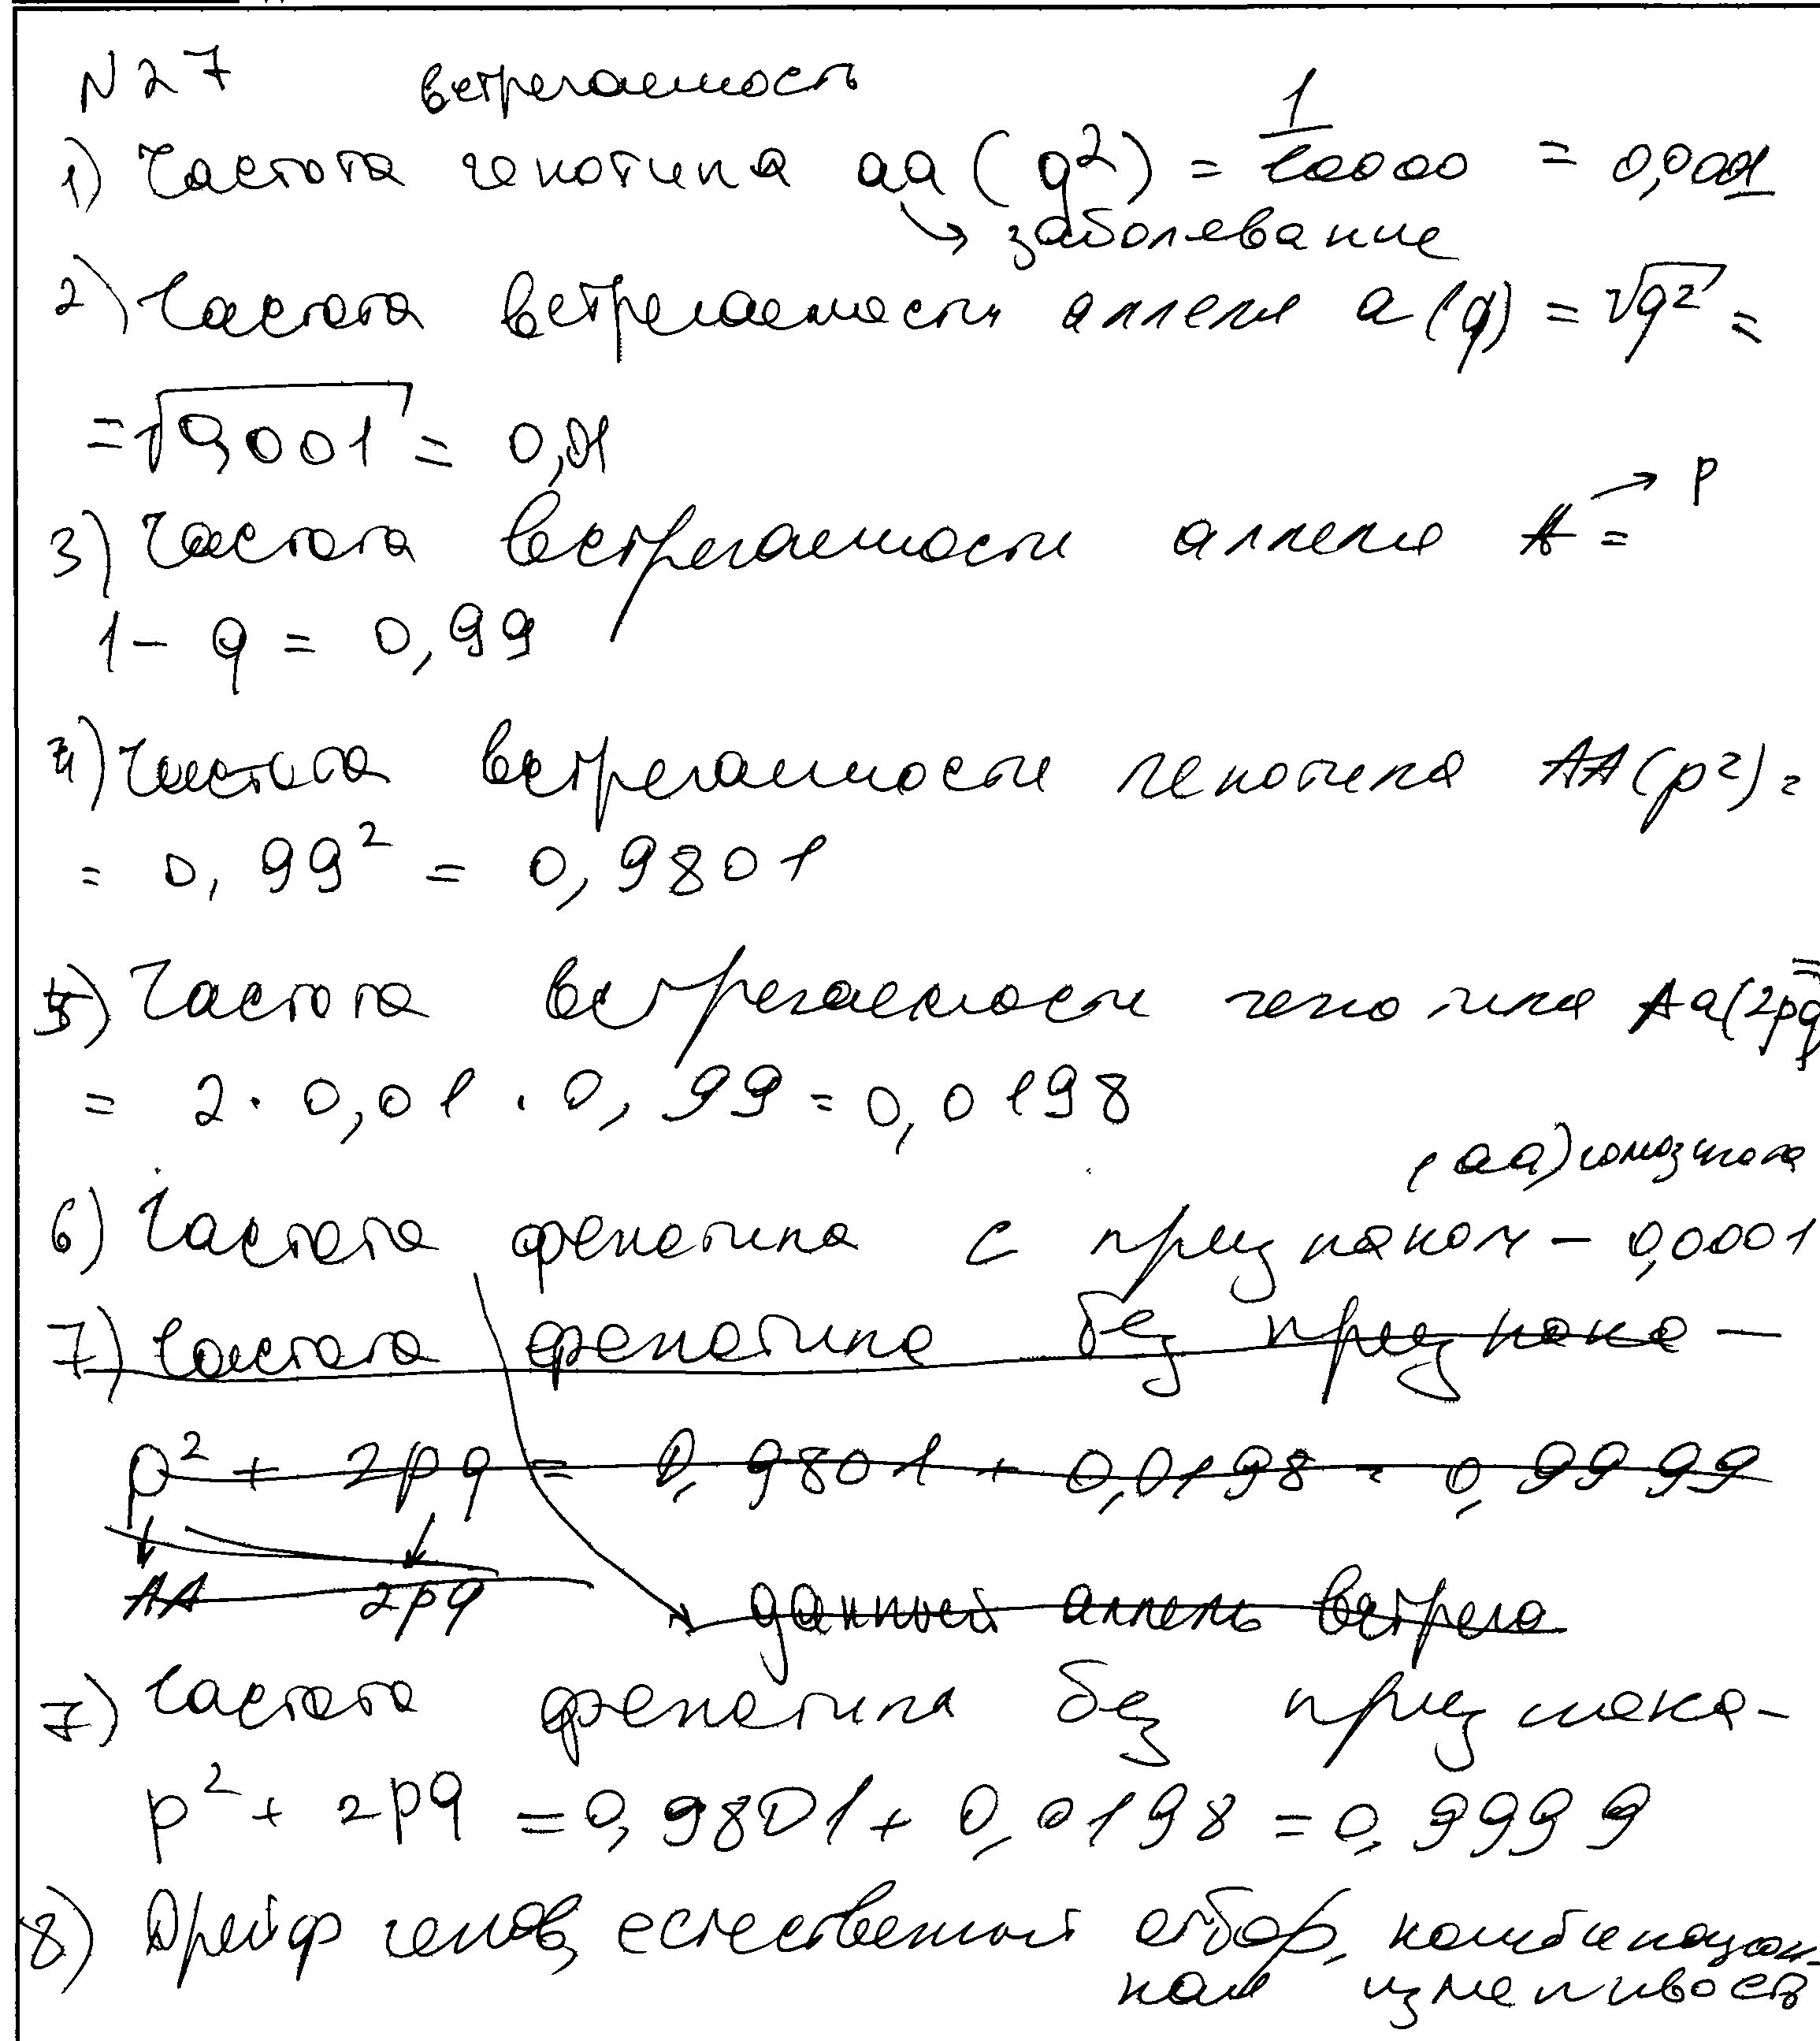 N 27 встречаемость
1) Частота генотипа aa (q²) = 1/10000 = 0,0001
→ заболевание
2) Частота встречаемости аллеля a (q) = √q² =
= √0,001 = 0,01
3) Частота встречаемости аллеля A = → p
1 - q = 0,99
4) Частота встречаемости генотипа AA (p²) =
= 0,99² = 0,9801
5) Частота встречаемости генотипа Aa (2pq) =
= 2 · 0,01 · 0,99 = 0,0198
(aa) гомозигота
6) Частота фенотипа с признаком - 0,0001
7) Частота фенотипа без признака -
p² + 2pq = 0,9801 + 0,0198 = 0,9999
AA 2pq данный аллель встреча
7) Частота фенотипа без признака -
p² + 2pq = 0,9801 + 0,0198 = 0,9999
8) Дрейф генов, естественный отбор, комбинацион-
ная изменчивость